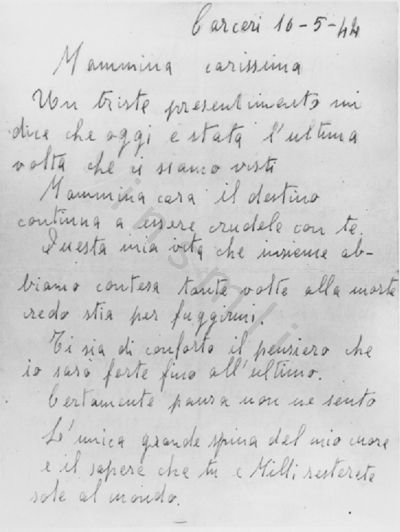 Carceri 10-5-44
Mammina carissima
Un triste presentimento mi
dice che oggi è stata l'ultima
volta che ci siamo visti
Mammina cara il destino
continua a essere crudele con te.
Questa mia vita che insieme ab-
biamo contesa tante volte alla morte
credo stia per fuggirmi.
Ti sia di conforto il pensiero che
io sarò forte fino all'ultimo.
Certamente paura non ne sento
L'unica grande spina del mio cuore
è il sapere che tu e Milli resterete
sole al mondo.